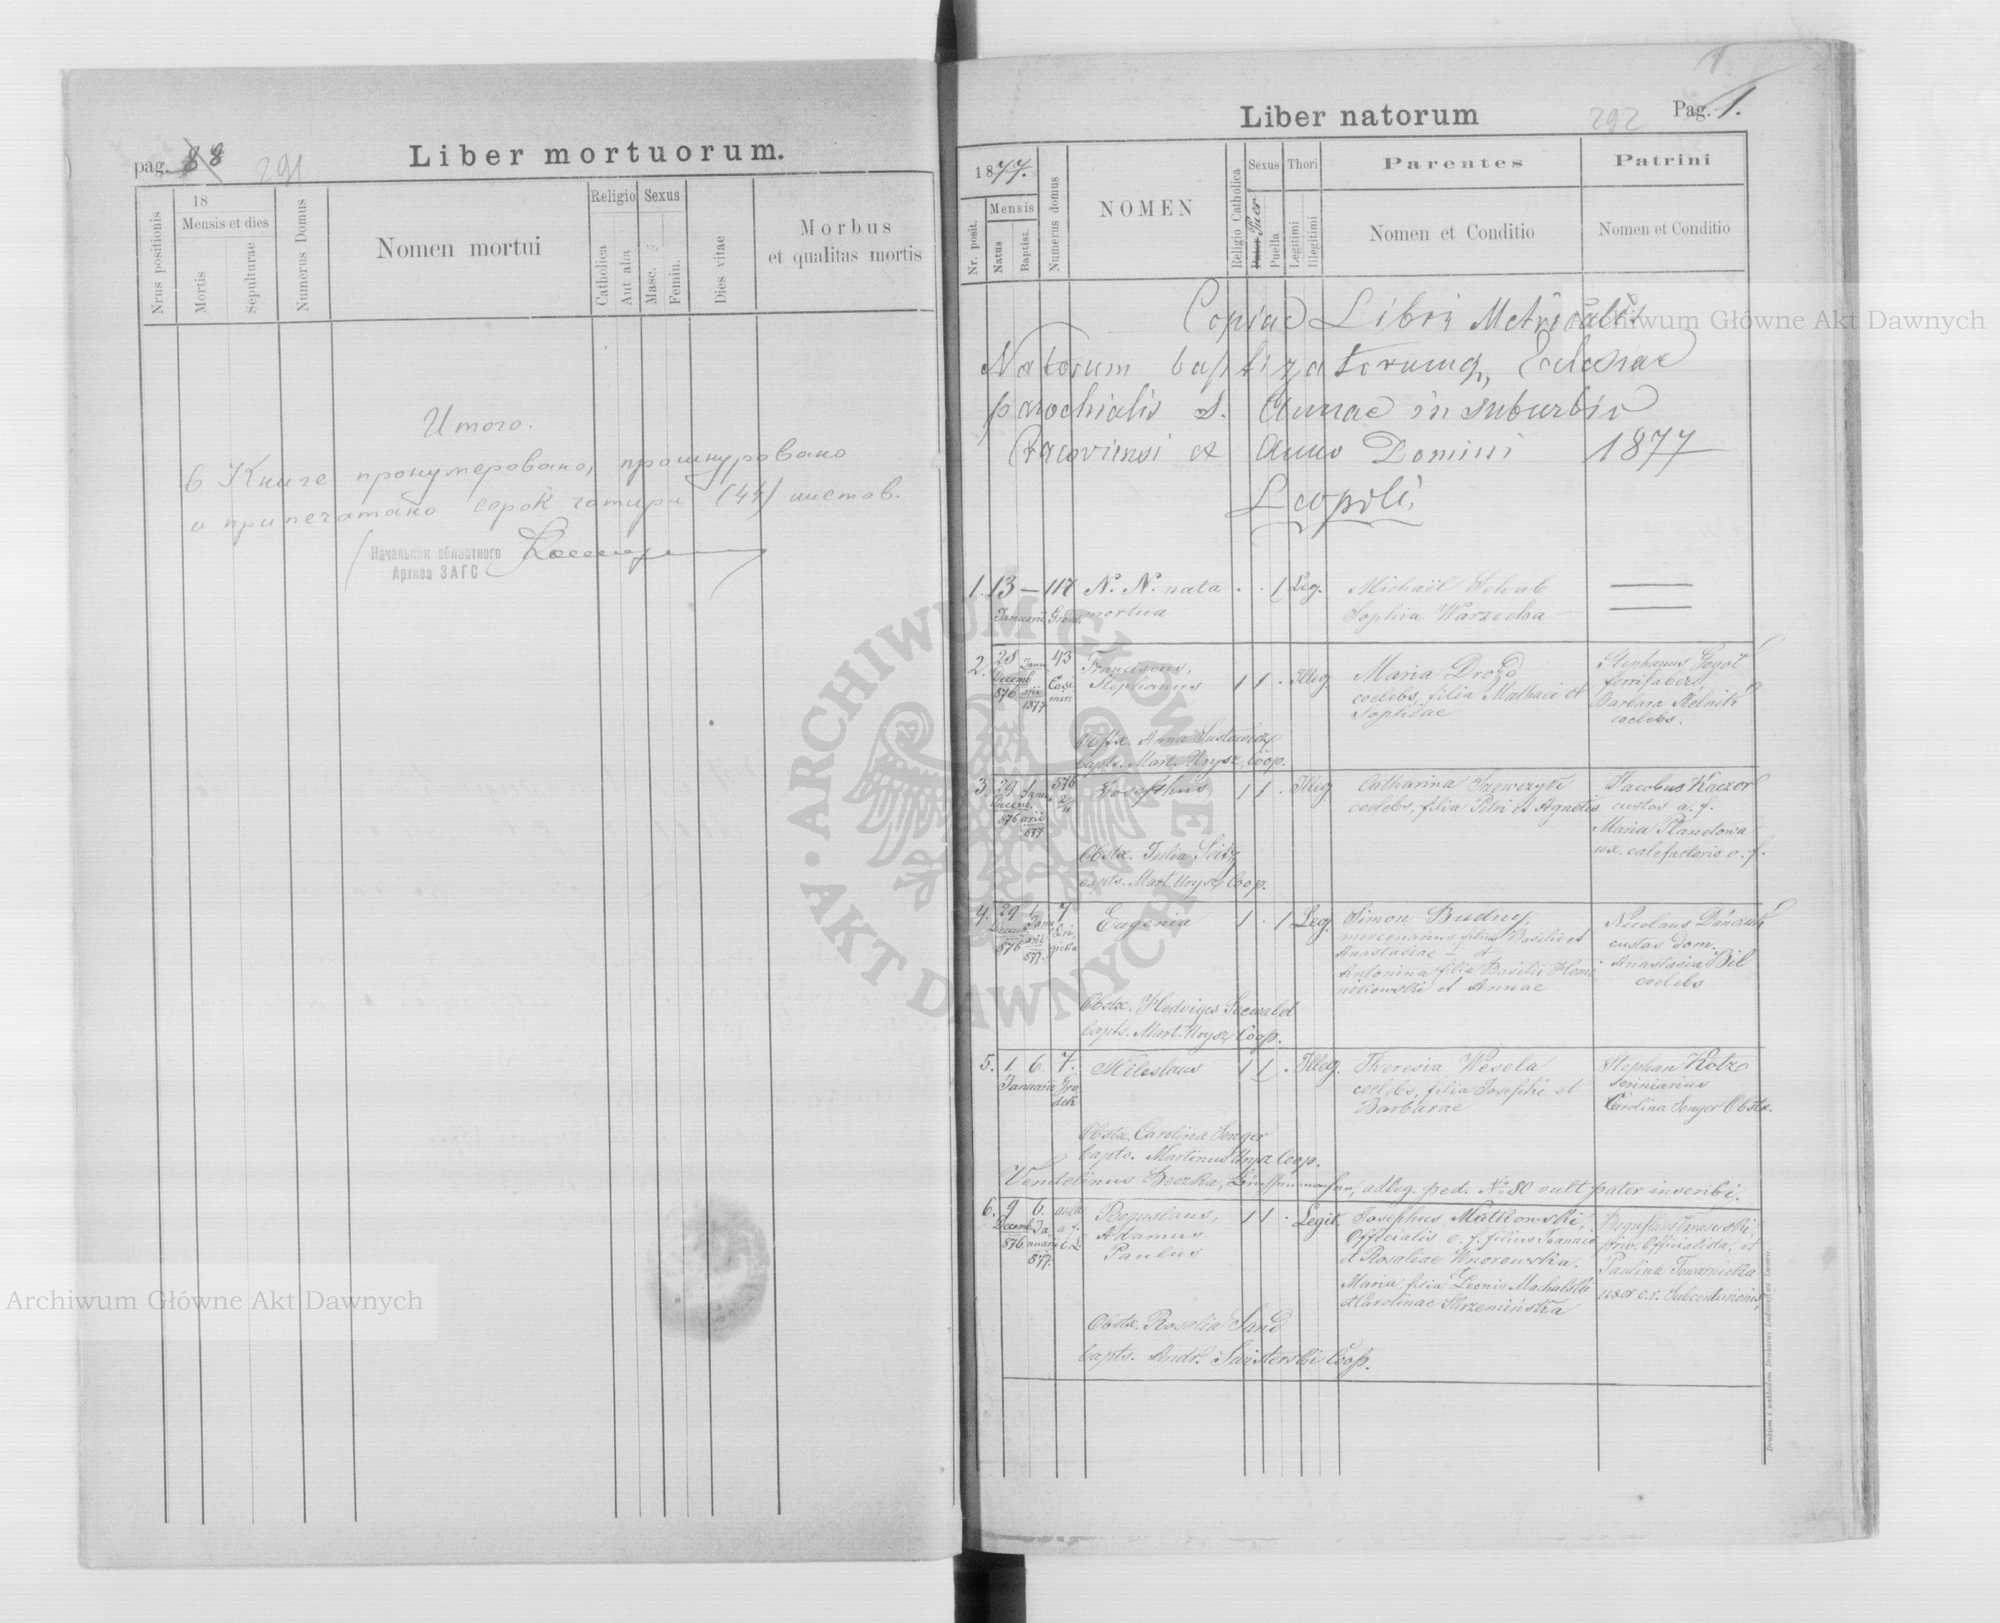 pag. 88 291
Liber mortuorum.
Nrus positionis
18
Mensis et dies
Mortis
Sepulturae
Numerus Domus
Nomen mortui
Religio
Catholica
Aut alia
Sexus
Masc.
Femin.
Dies vitae
Morbus
et qualitas mortis
Итого.
в Книге пронумеровано, прошнуровано
и припечатано сорок чотири (44) листов.
Начальник областного
Архива ЗАГС
Liber natorum
292 Pag. 1.
1877.
Nr. posit.
Mensis
Natus
Baptist.
Numerus domus
NOMEN
Religio Catholica
Sexus
Puer
Puella
Thori
Legitimi
Illegitimi
Parentes
Nomen et Conditio
Patrini
Nomen et Conditio
Copiae Libri Metricalis
Natorum baptizatorumq, Ecclesiae
parochialis S. Annae in suburbio
Cracoviensi et Anno Domini 1877
Leopoli,
1. 13 — 117 N. N. nata · · 1 Leg. Michaël Schab
Januarii mortua Sophia Warzecha
2. 28 43 Franciscus, 1 1 · Illeg. Maria Drozd Stephanus Gogol
Decemb 876 1877 Stephanus coelebs, filia Mathaei et ferrifaber
Sophiae Barbara Melnik
coelebs.
Obstx. Anna
bapts. Mart. Urysz, Coop.
3. 29 1 576 Josephus, 1 1 · Illeg Catharina Szewczyk Jacobus Kaczor
Decemb. 876 877 coelebs, filia Petri et Agnetis custos a. f.
Maria Planetowa
ux. calefactoris a. f.
Obstx. Julia Seitz
bapts. Mart. Urysz Coop.
4. 29 1 7 Eugenia 1 · 1 Leg. Simon Budny,
Decemb. 876 877. mercenarius filius Basilii et Nicolaus
Anastasiae custos dom.
Antonina filia Basilii Anastasia Bil
et Annae coelebs
Obstx. Hedvigis
bapts. Mart. Urysz Coop.
5. 1. 6. 7. Mileslaus 1 1 · Illeg. Theresia Wesela Stephan
Januarii Grodek coelebs, filia Josephi et
Barbarae Carolina Senger Obstx.
Obstx. Carolina Senger
bapts. Martinus Urysz Coop.
Vendelinus Beczka, adleg. ped. No 80 vult pater inscribi.
6. 9 6. Boguslaus, 1 1 · Legit. Josephus Malkowski,
Decemb. Januarii Adamus Officialis a. f. filius Joannis priv. Officialista, et
876 877. Paulus et Rosaliae Knorowska. Paulina Towarnicka
Maria filia Leonis Machalski uxor
et Carolinae Skrzemińska
Obstx. Rosalia Sand
bapts. Andr. Swisterski Coop.
Archiwum Główne Akt Dawnych
Archiwum Główne Akt Dawnych
ARCHIWUM GŁÓWNE · AKT DAWNYCH ·